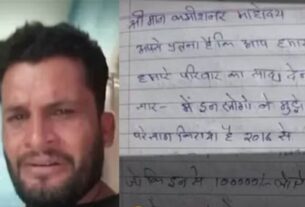 श्री मान कमीशनर महोदय
आपसे प्रार्थना है कि आप हमारे
हमारे परिवार का साथ देना
सार - में इन लोगो ने मुझे
परेशान किया है 2016 से
जो कि इन मे 100000/-